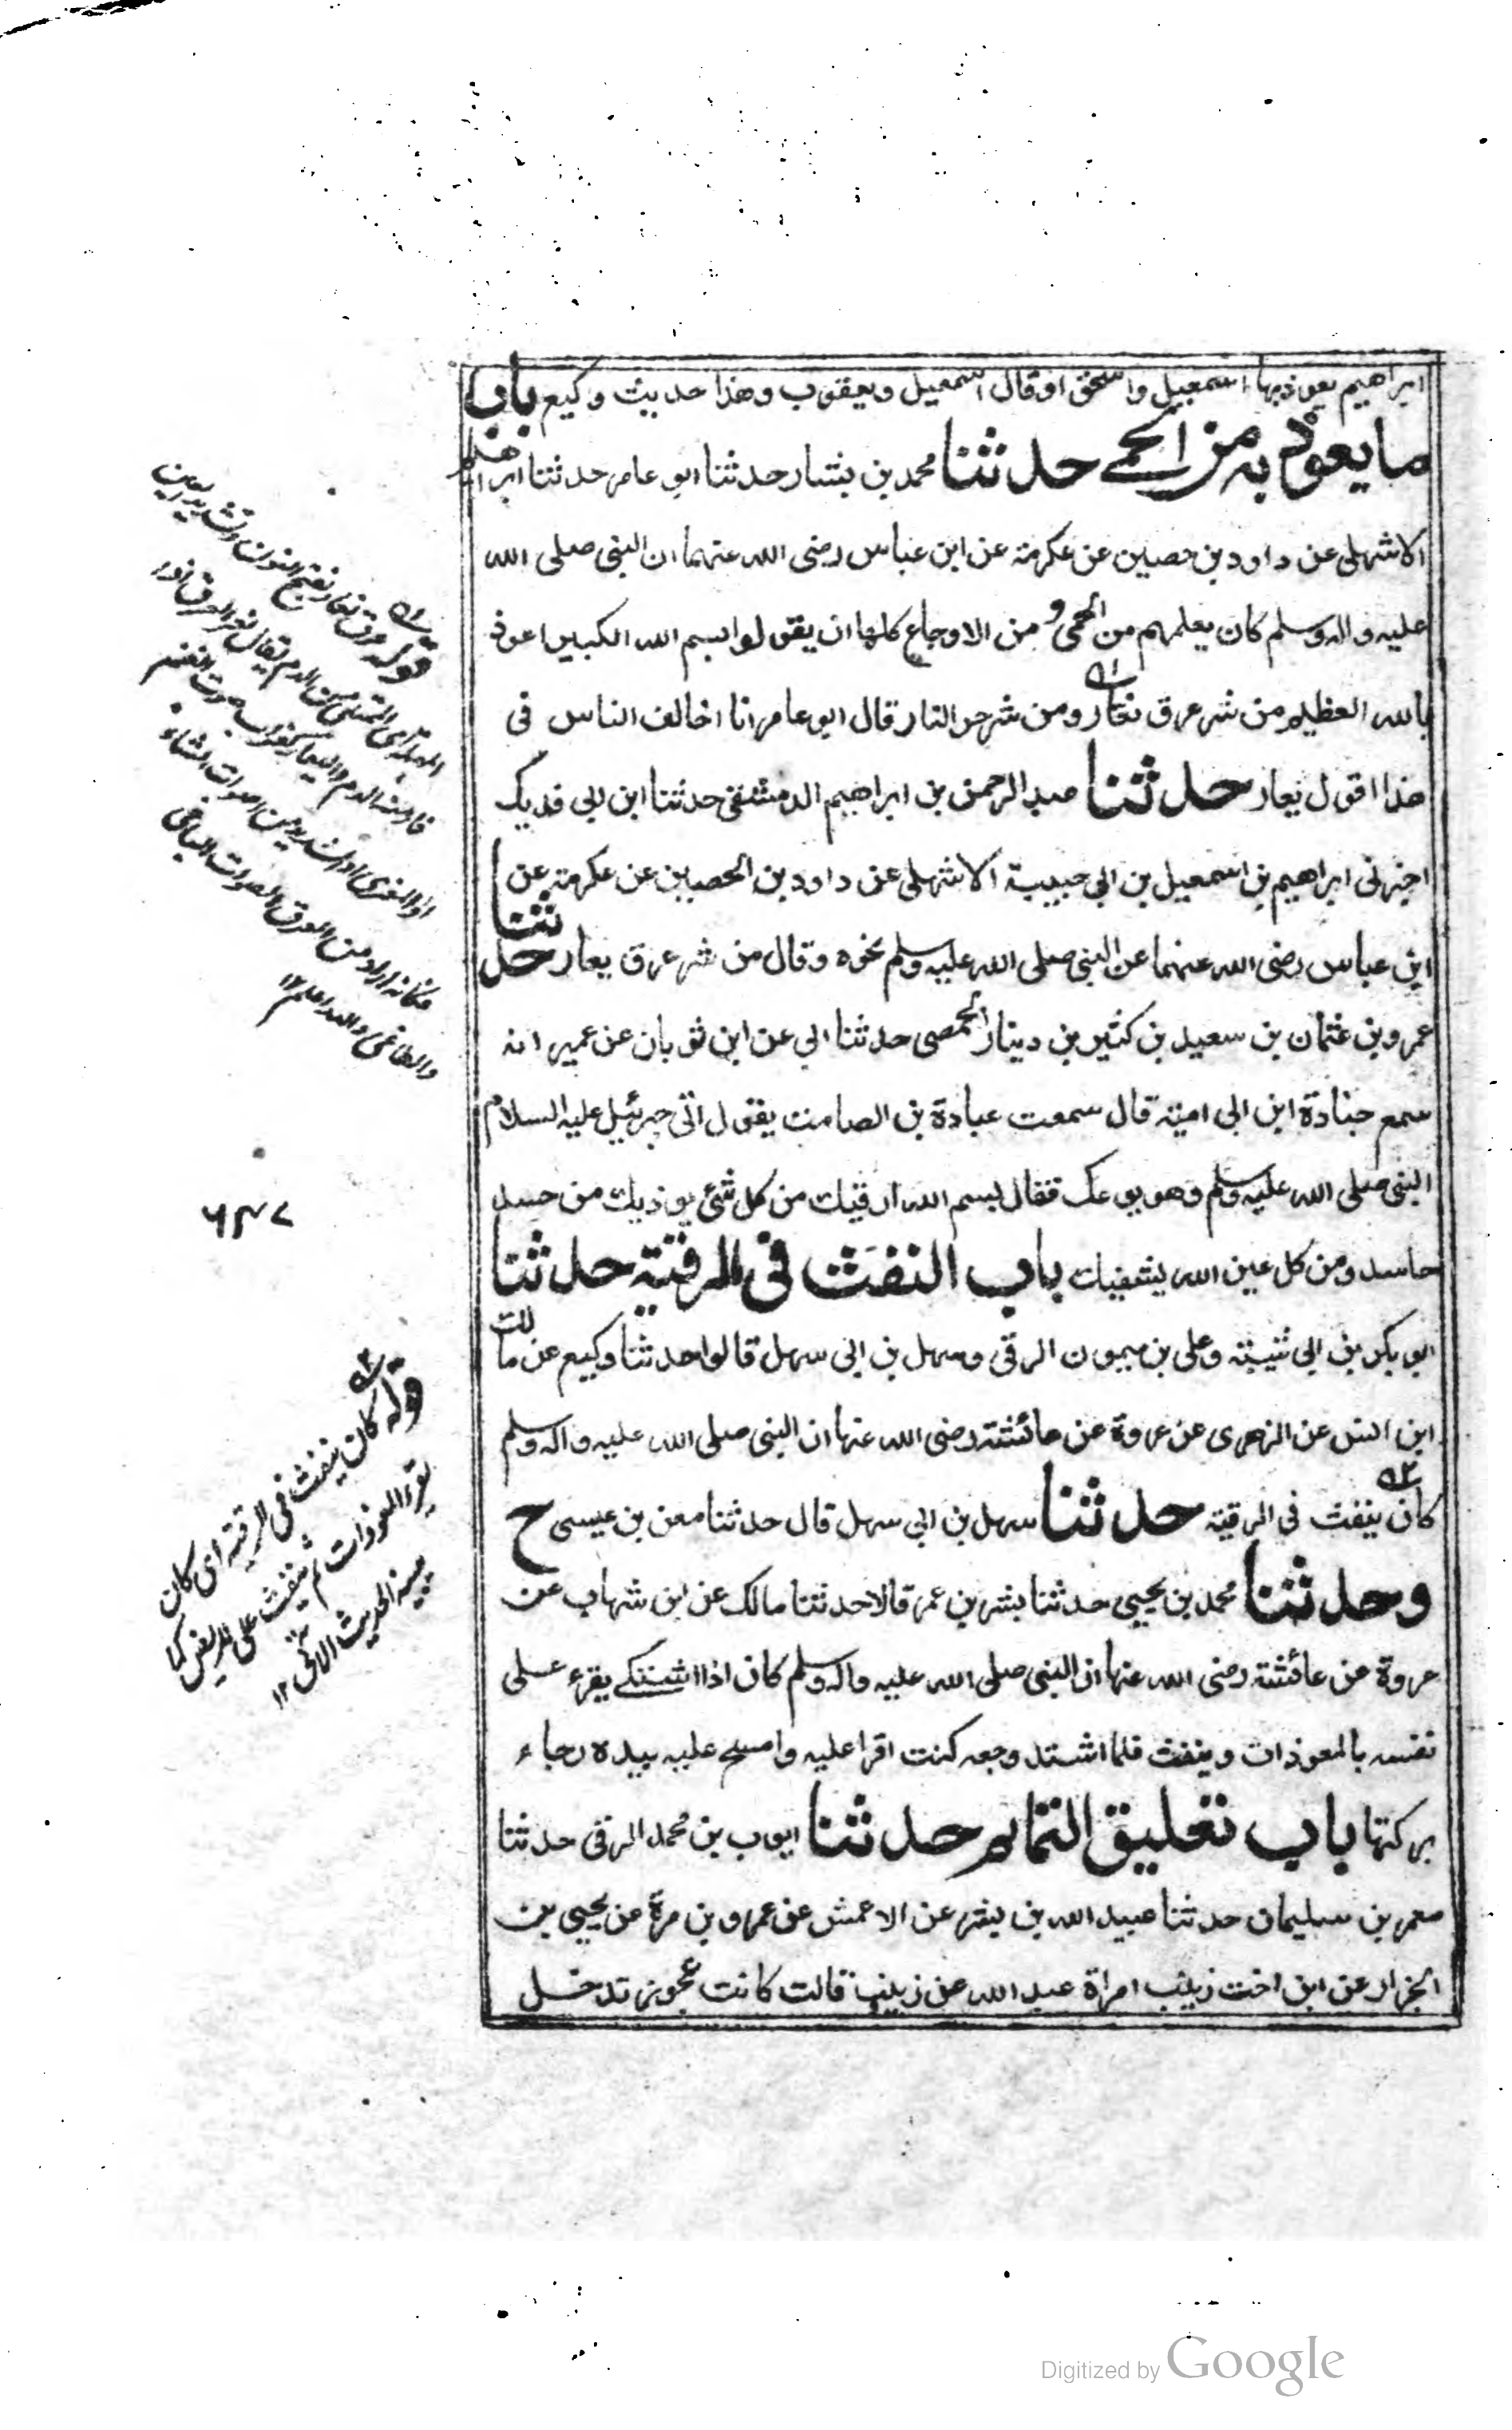 ابراهيم يعوذ بها اسمعيل واسحق او قال اسمعيل ويعقوب وهذا حديث وكيع باب
ما يعوذ به من الحمى حدثنا محمد بن بشار حدثنا ابو عامر حدثنا ابراهيم
الاشهلى عن داود بن حصين عن عكرمة عن ابن عباس رضى الله عنهما ان النبى صلى الله
عليه واله وسلم كان يعلمهم من الحمى و من الاوجاع كلها ان يقولوا بسم الله الكبير اعوذ
بالله العظيم من شر عرق نعار ومن شر حر النار قال ابو عامر انا اخالف الناس فى
هذا اقول يعار حدثنا عبد الرحمن بن ابراهيم الدمشقى حدثنا ابن ابى فديك
اخبرنى ابراهيم بن اسمعيل بن ابى حبيبة الاشهلى عن داود بن الحصين عن عكرمة عن
ابن عباس رضى الله عنهما عن النبى صلى الله عليه وسلم نحوه وقال من شر عرق يعار حدثنا
عمرو بن عثمان بن سعيد بن كثير بن دينار الحمصى حدثنا ابى عن ابن ثوبان عن عمير انه
سمع جنادة ابن ابى امية قال سمعت عبادة بن الصامت يقول اتى جبرئيل عليه السلام
النبى صلى الله عليه وسلم وهو يوعك فقال بسم الله ارقيك من كل شئ يوذيك من حسد
حاسد ومن كل عين الله يشفيك باب النفث فى الرقية حدثنا
ابو بكر بن ابى شيبة وعلى بن ميمون الرقى وسهل بن ابى سهل قالوا حدثنا وكيع عن مالك
ابن انس عن الزهرى عن عروة عن عائشة رضى الله عنها ان النبى صلى الله عليه واله وسلم
كان ينفث فى الرقية حدثنا سهل بن ابى سهل قال حدثنا معن بن عيسى ح
وحدثنا محمد بن يحيى حدثنا بشر بن عمر قالا حدثنا مالك عن ابن شهاب عن
عروة عن عائشة رضى الله عنها ان النبى صلى الله عليه واله وسلم كان اذا اشتكى يقرء على
نفسه بالمعوذات وينفث فلما اشتد وجعه كنت اقرا عليه وامسح عليه بيده رجاء
بركتها باب تعليق التمائم حدثنا ايوب بن محمد الرقى حدثنا
معمر بن سليمان حدثنا عبيد الله بن بشر عن الاعمش عن عمرو بن مرة عن يحيى بن
الجزار عن ابن اخت زينب امراة عبد الله عن زينب قالت كانت عجوز تدخل
قوله عرق نعار بفتح النون وتشديد العين
المهملة اى الممتلى من الدم يقال نعر العرق
والله اعلم ١٢
قوله كان ينفث فى الرقية اى كان
يقرء المعوذات ثم ينفث على المريض كما
يبينه الحديث الاتى ١٢
Digitized by Google